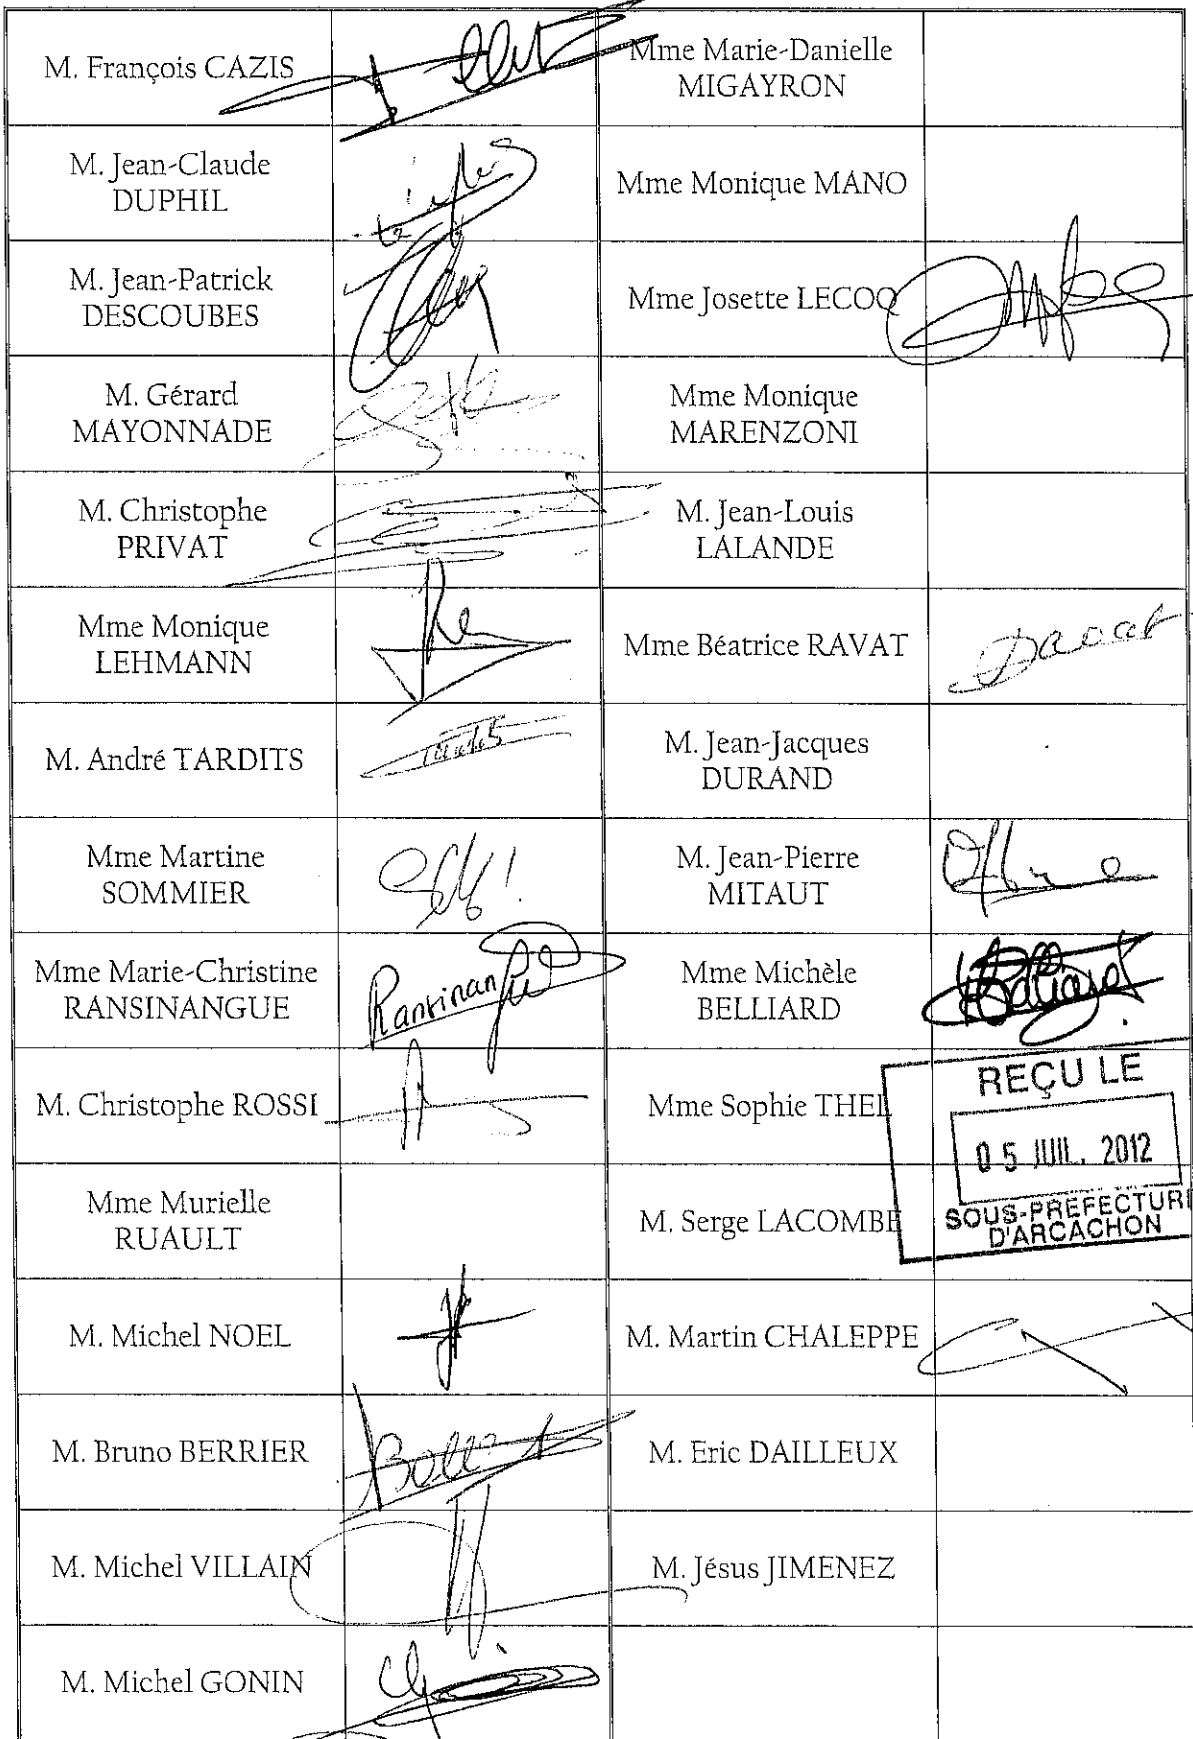 M. François CAZIS
Mme Marie-Danielle
MIGAYRON
M. Jean-Claude
DUPHIL
Mme Monique MANO
M. Jean-Patrick
DESCOUBES
Mme Josette LECOQ
M. Gérard
MAYONNADE
Mme Monique
MARENZONI
M. Christophe
PRIVAT
M. Jean-Louis
LALANDE
Mme Monique
LEHMANN
Mme Béatrice RAVAT
M. André TARDITS
M. Jean-Jacques
DURAND
Mme Martine
SOMMIER
M. Jean-Pierre
MITAUT
Mme Marie-Christine
RANSINANGUE
Mme Michèle
BELLIARD
M. Christophe ROSSI
Mme Sophie THEL
REÇU LE
05 JUIL. 2012
SOUS-PRÉFECTURE
D'ARCACHON
Mme Murielle
RUAULT
M. Serge LACOMBE
M. Michel NOEL
M. Martin CHALEPPE
M. Bruno BERRIER
M. Eric DAILLEUX
M. Michel VILLAIN
M. Jésus JIMENEZ
M. Michel GONIN